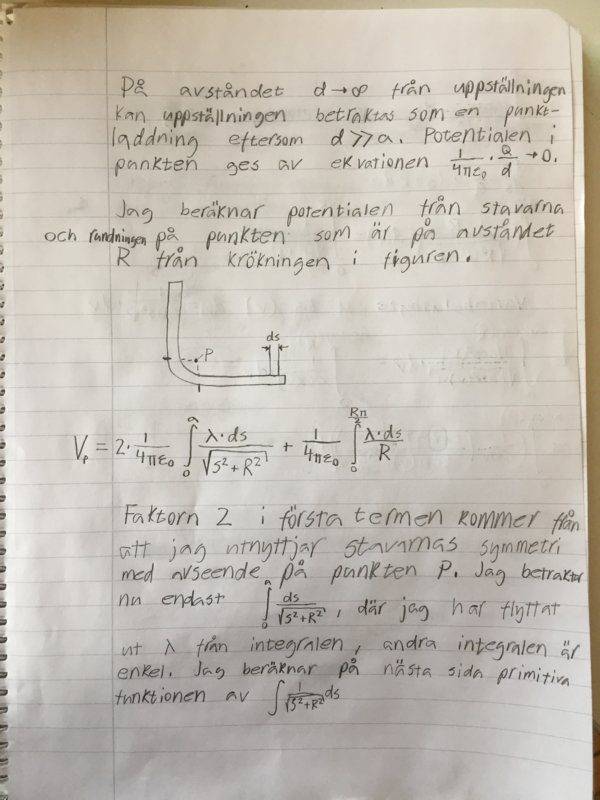 På avståndet d→∞ från uppställningen
kan uppställningen betraktas som en punkt-
laddning eftersom d>>a. Potentialen i
punkten ges av ekvationen 1/4πε₀ · Q/d → 0.
Jag beräknar potentialen från stavarna
och rundningen på punkten som är på avståndet
R från krökningen i figuren.
ds
P
V_P = 2· 1/4πε₀ ∫₀^a λ·ds/√(s²+R²) + 1/4πε₀ ∫₀^(Rπ/2) λ·ds/R
Faktorn 2 i första termen kommer från
att jag utnyttjar stavarnas symmetri
med avseende på punkten P. Jag betraktar
nu endast ∫₀^a ds/√(s²+R²), där jag har flyttat
ut λ från integralen, andra integralen är
enkel. Jag beräknar på nästa sida primitiva
funktionen av ∫ 1/√(s²+R²) ds